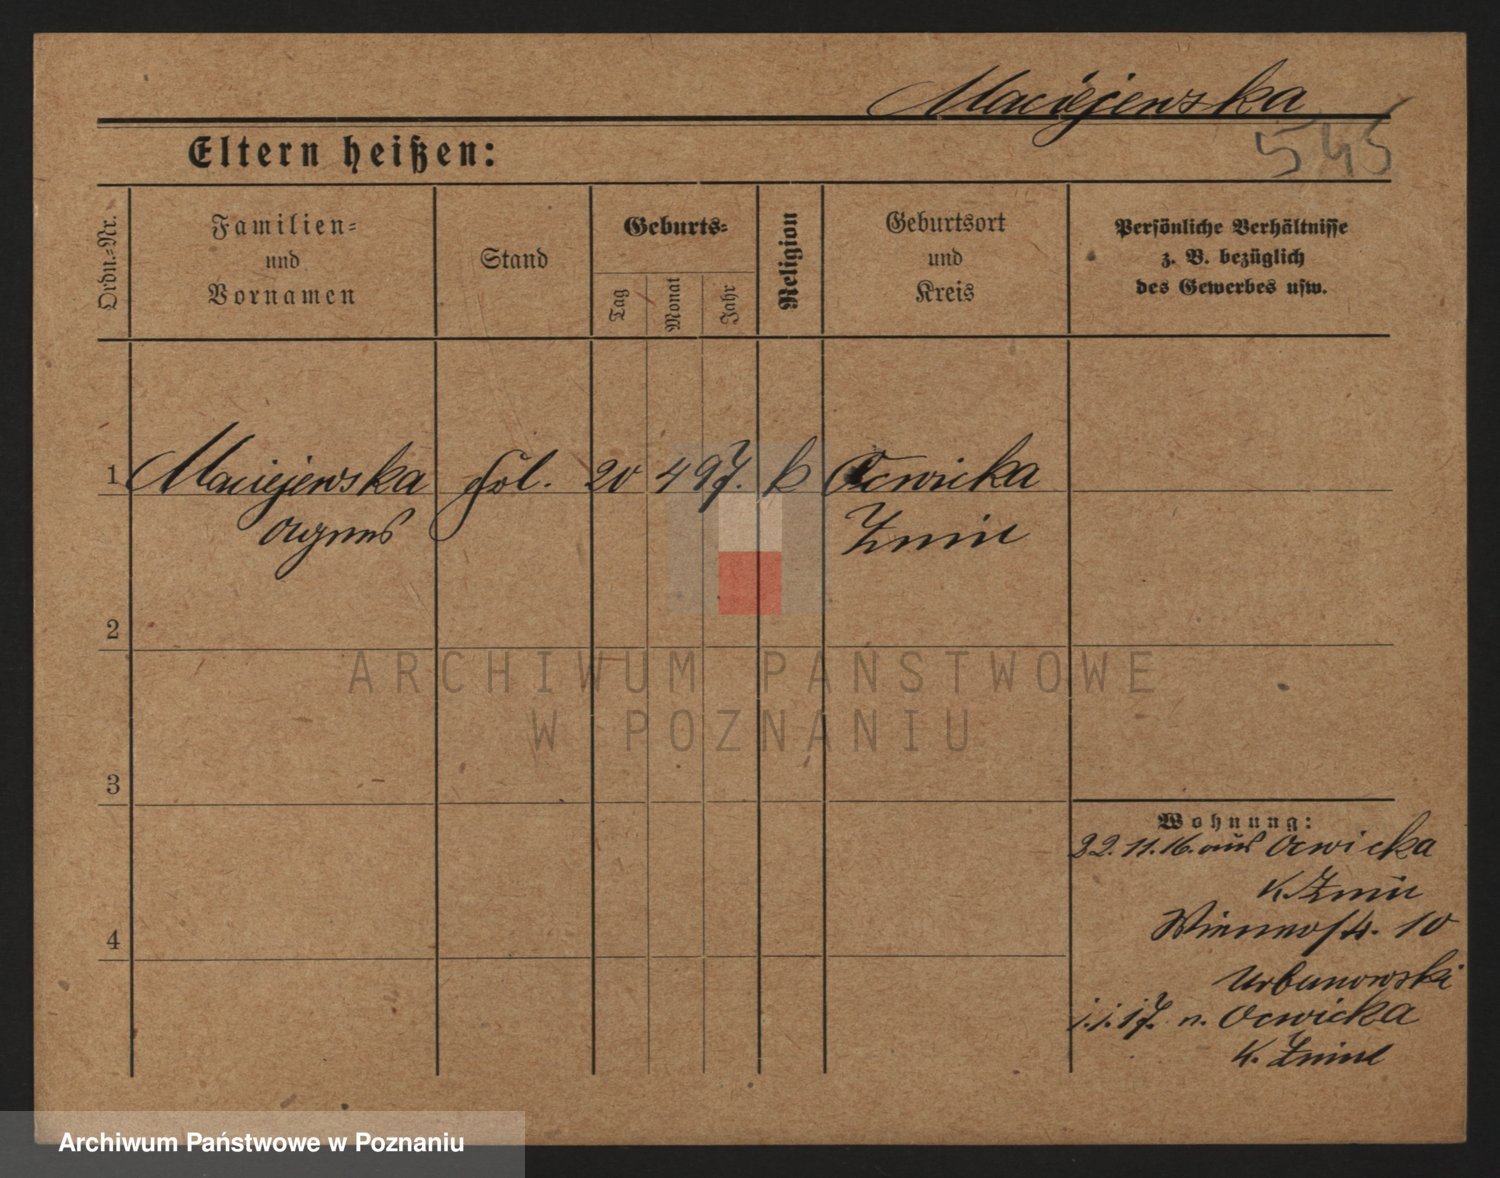 Maciejewska
545
Eltern heißen:
Ordn.-Nr.
Familien-
und
Vornamen
Stand
Geburts-
Tag
Monat
Jahr
Religion
Geburtsort
und
Kreis
Persönliche Verhältnisse
z. B. bezüglich
des Gewerbes usw.
1 Maciejewska 20 4 97. k Ocwicka
Agnes Znin
2
3
4
ARCHIWUM PAŃSTWOWE
W POZNANIU
Wohnung:
22.11.16. aus Ocwicka
K. Znin
10
Urbanowski
1.1.17. n. Ocwicka
K. Znin
Archiwum Państwowe w Poznaniu